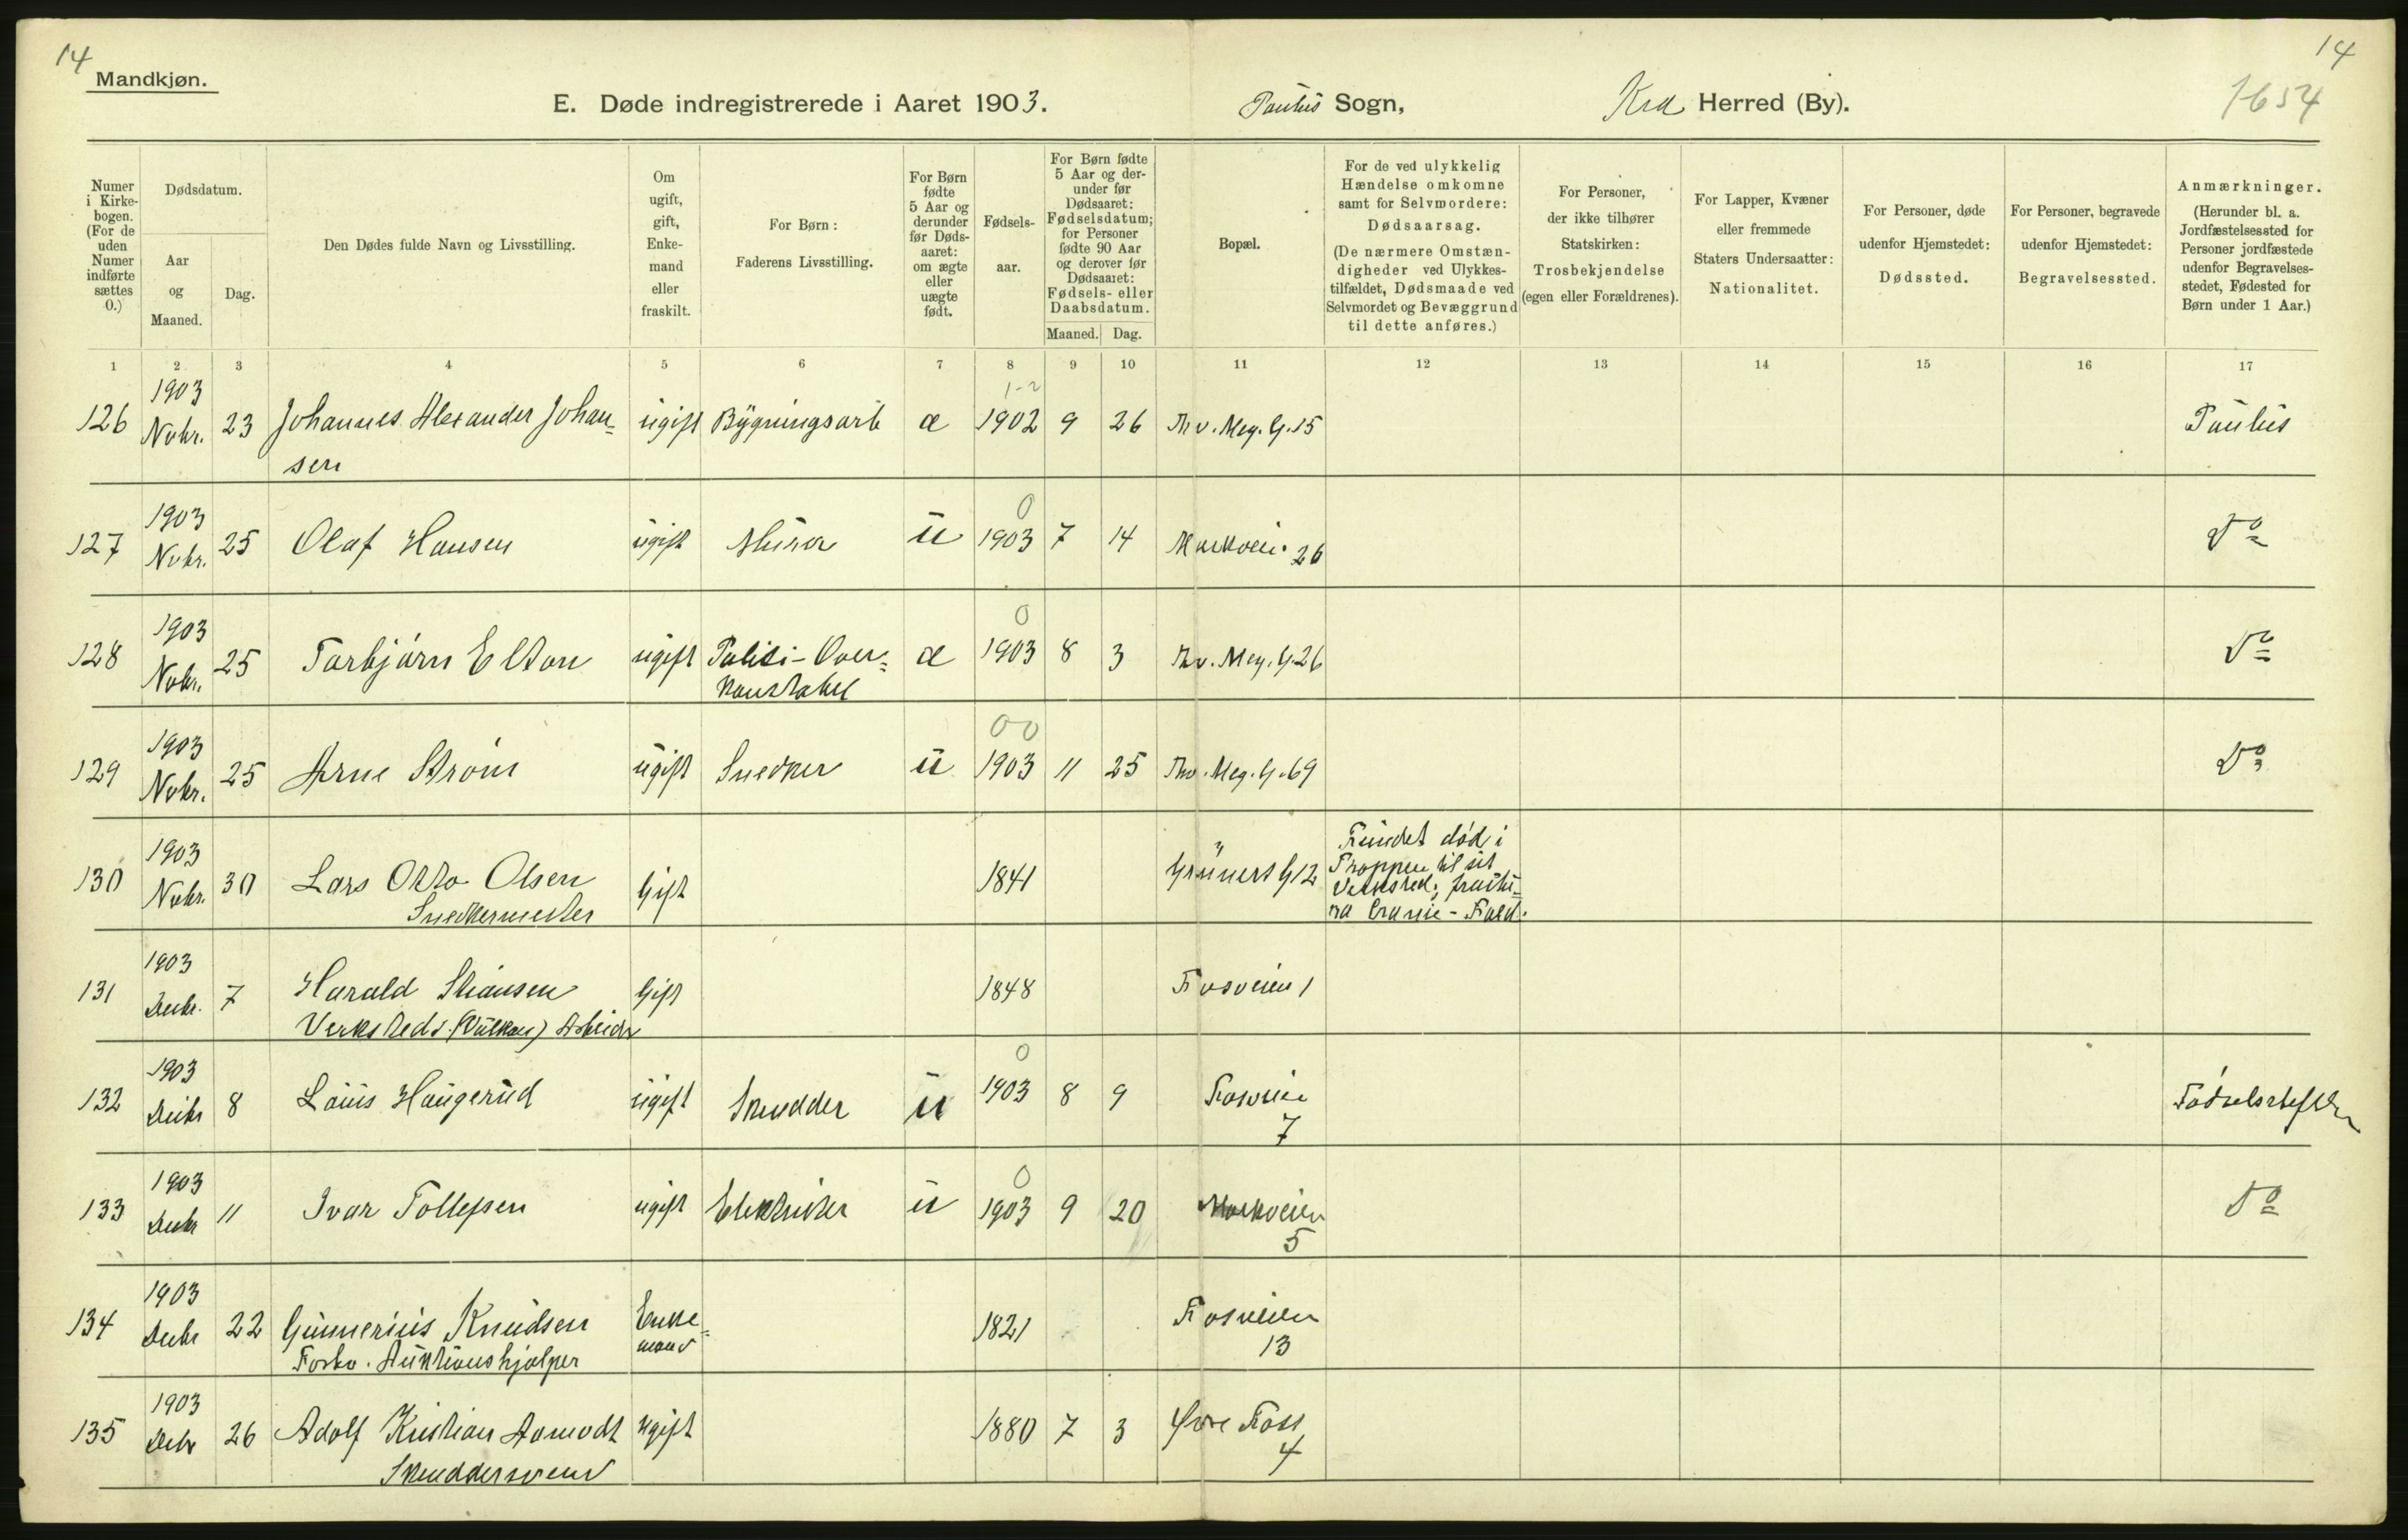 14
14
Mandkjøn.
E. Døde indregistrerede i Aaret 1903.
Paulus Sogn,
Kra Herred (By).
1654
Numer i Kirke- bogen. (For de uden Numer indførte sættes 0.)
Dødsdatum.
Aar og Maaned.
Dag.
Den Dødes fulde Navn og Livsstilling.
Om ugift, gift, Enke- mand eller fraskilt.
For Børn: Faderens Livsstilling.
For Børn fødte 5 Aar og derunder før Døds- aaret: om ægte eller uægte født.
Fødsels- aar.
For Børn fødte 5 Aar og der- under før Dødsaaret: Fødselsdatum; for Personer fødte 90 Aar og derover før Dødsaaret: Fødsels- eller Daabsdatum.
Maaned. Dag.
Bopæl.
For de ved ulykkelig Hændelse omkomne samt for Selvmordere: Dødsaarsag. (De nærmere Omstæn- digheder ved Ulykkes- tilfældet, Dødsmaade ved Selvmordet og Bevæggrund til dette anføres.)
For Personer, der ikke tilhører Statskirken: Trosbekjendelse (egen eller Forældrenes).
For Lapper, Kvæner eller fremmede Staters Undersaatter: Nationalitet.
For Personer, døde udenfor Hjemstedet: Dødssted.
For Personer, begravede udenfor Hjemstedet: Begravelsessted.
Anmærkninger. (Herunder bl. a. Jordfæstelsessted for Personer jordfæstede udenfor Begravelses- stedet, Fødested for Børn under 1 Aar.)
1 2 3 4 5 6 7 8 9 10 11 12 13 14 15 16 17
1903 1-2
126 Nvbr. 23 Johannes Alexander Johan= ugift Bygningsarb æ 1902 9 26 Thv. Mey. G. 15 Paulus
sen
1903 0
127 Nvbr. 25 Olaf Hansen ugift Murer u 1903 7 14 Markvei. 26 Do
1903 0
128 Nvbr. 25 Torbjørn Elton ugift Politi-Over= æ 1903 8 3 Thv. Mey. G. 26 Do
konstabel
1903 00
129 Nvbr. 25 Arne Strøm ugift Snedker u 1903 11 25 Thv. Mey. G. 69 Do
1903 Fundet død i
130 Nvbr. 30 Lars Otto Olsen Gift 1841 Grüners G 12 Trappen til sit
Snedkermester Verksted;
1903
131 Decbr. 7 Harald Stiansen Gift 1848 Fosveien 1
Verksteds (Vulkan) Arbeider
1903 0
132 Decbr 8 Louis Haugerud ugift Skrædder u 1903 8 9 Fosveien Fødselsstiftelsen
7
1903 0
133 Decbr 11 Ivar Tollefsen ugift Elektriker u 1903 9 20 Markveien Do
5
1903
134 Decbr 22 Gunnerius Knudsen Enke= 1821 Fosveien
Forhv. Auktionshjælper mand 13
1903
135 Dcbr 26 Adolf Kristian Aamodt ugift 1880 7 3 Øvre Foss
Skræddersvend 4